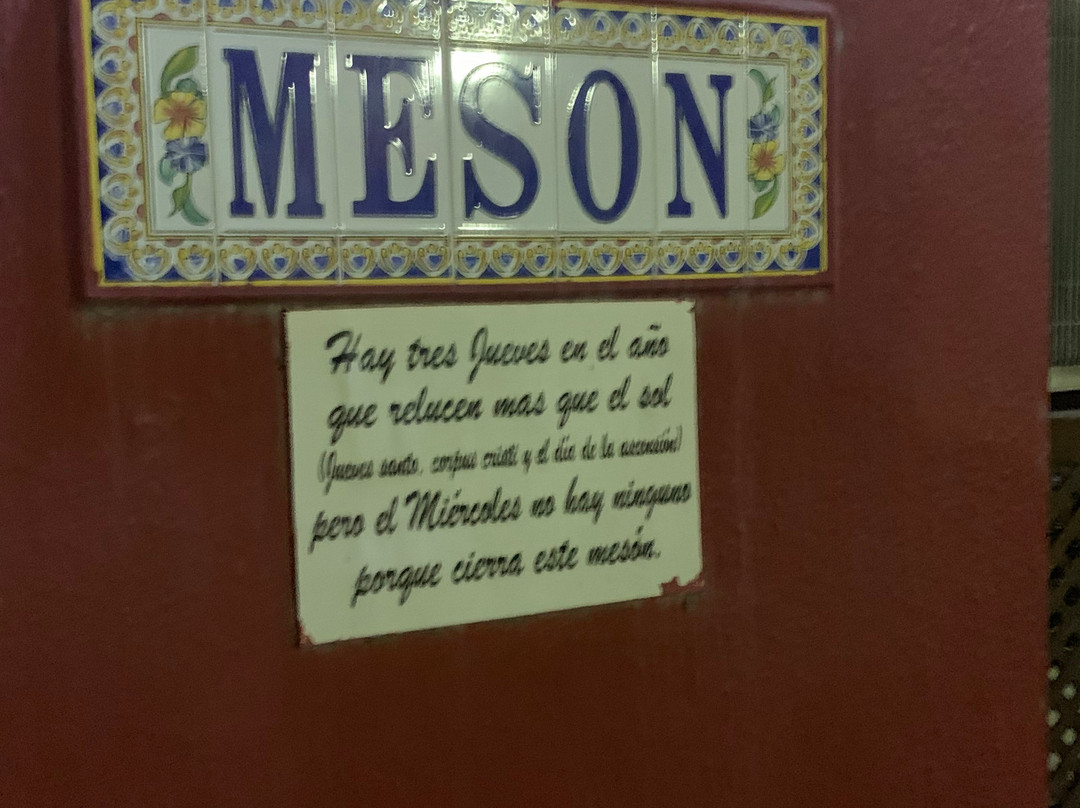 MESON
Hay tres Jueves en el año
que relucen mas que el sol
(Jueves santo, corpus cristi y el día de la ascensión)
pero el Miércoles no hay ninguno
porque cierra este mesón.